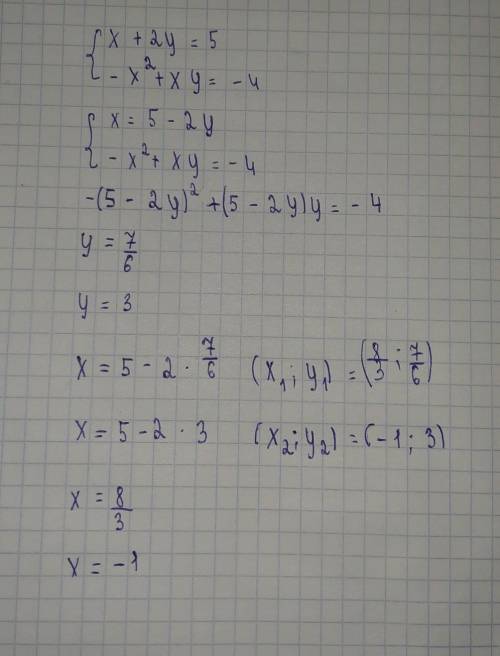 { x + 2y = 5
- x² + xy = - 4
{ x = 5 - 2y
- x² + xy = - 4
-(5 - 2y)² + (5 - 2y)y = - 4
y = 7/6
y = 3
x = 5 - 2 · 7/6 (x₁; y₁) = (8/3; 7/6)
x = 5 - 2 · 3 (x₂; y₂) = (-1; 3)
x = 8/3
x = -1